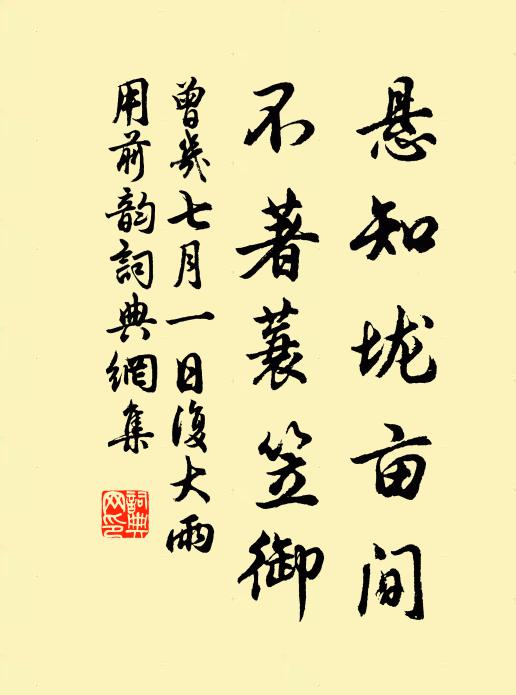 悬知垅亩间
不著蓑笠御
曾幾七月一日復大雨
用前韵詞典網集
詞典网印